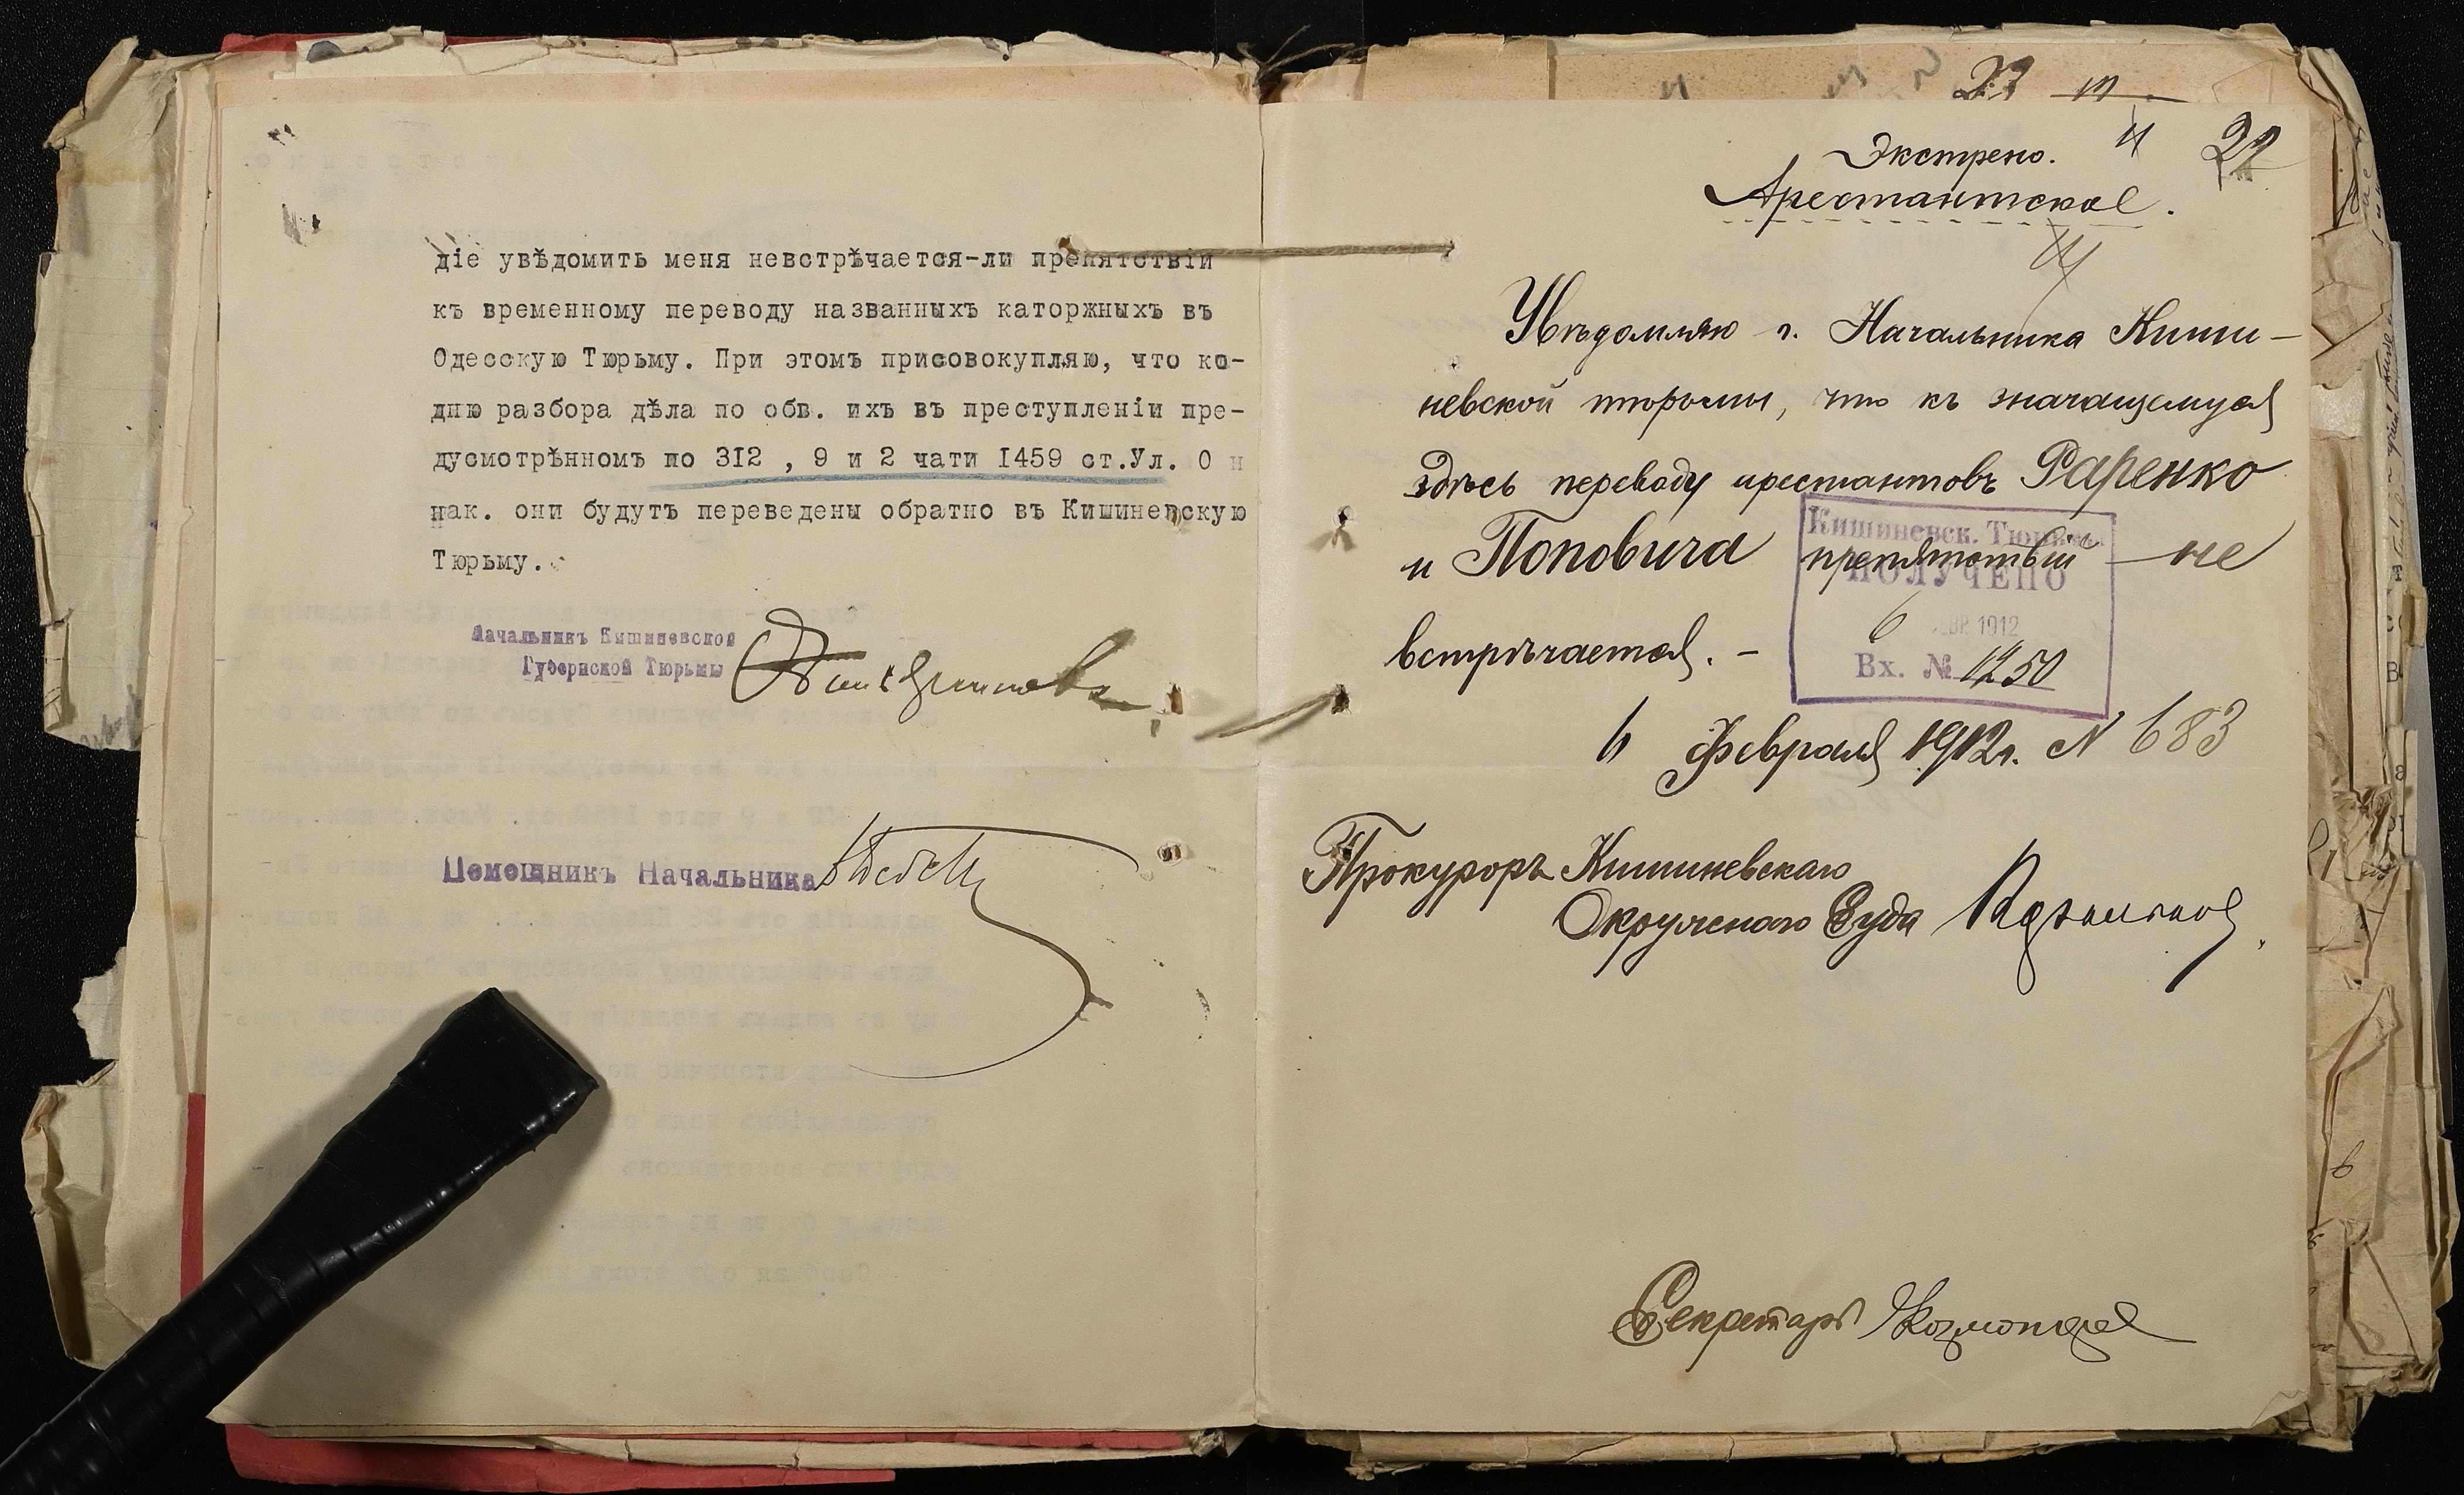 діе увѣдомить меня невстрѣчается-ли препятствій
къ временному переводу названныхъ каторжныхъ въ
Одесскую Тюрьму. При этомъ присовокупляю, что ко-
дню разбора дѣла по обв. ихъ въ преступленіи пре-
дусмотрѣнномъ по 312 , 9 и 2 чати 1459 ст.Ул. О н
нак. они будутъ переведены обратно въ Кишиневскую
Тюрьму.
Начальникъ Кишиневской
Губернской Тюрьмы
Помощникъ Начальника
Экстрено.
Арестантское.
Увѣдомляю г. Начальника Киши-
невской тюрьмы, что къ значащемуся
здѣсь переводу арестантовъ Фаренко
и Поповича препятствій — не
встрѣчается. —
Кишиневск. Тюрьма
ПОЛУЧЕНО
6 ФЕВ 1912
Вх. № 1250
6 Февраля 1912г. N 683
Прокуроръ Кишиневскаго
Окружнаго Суда
Секретарь